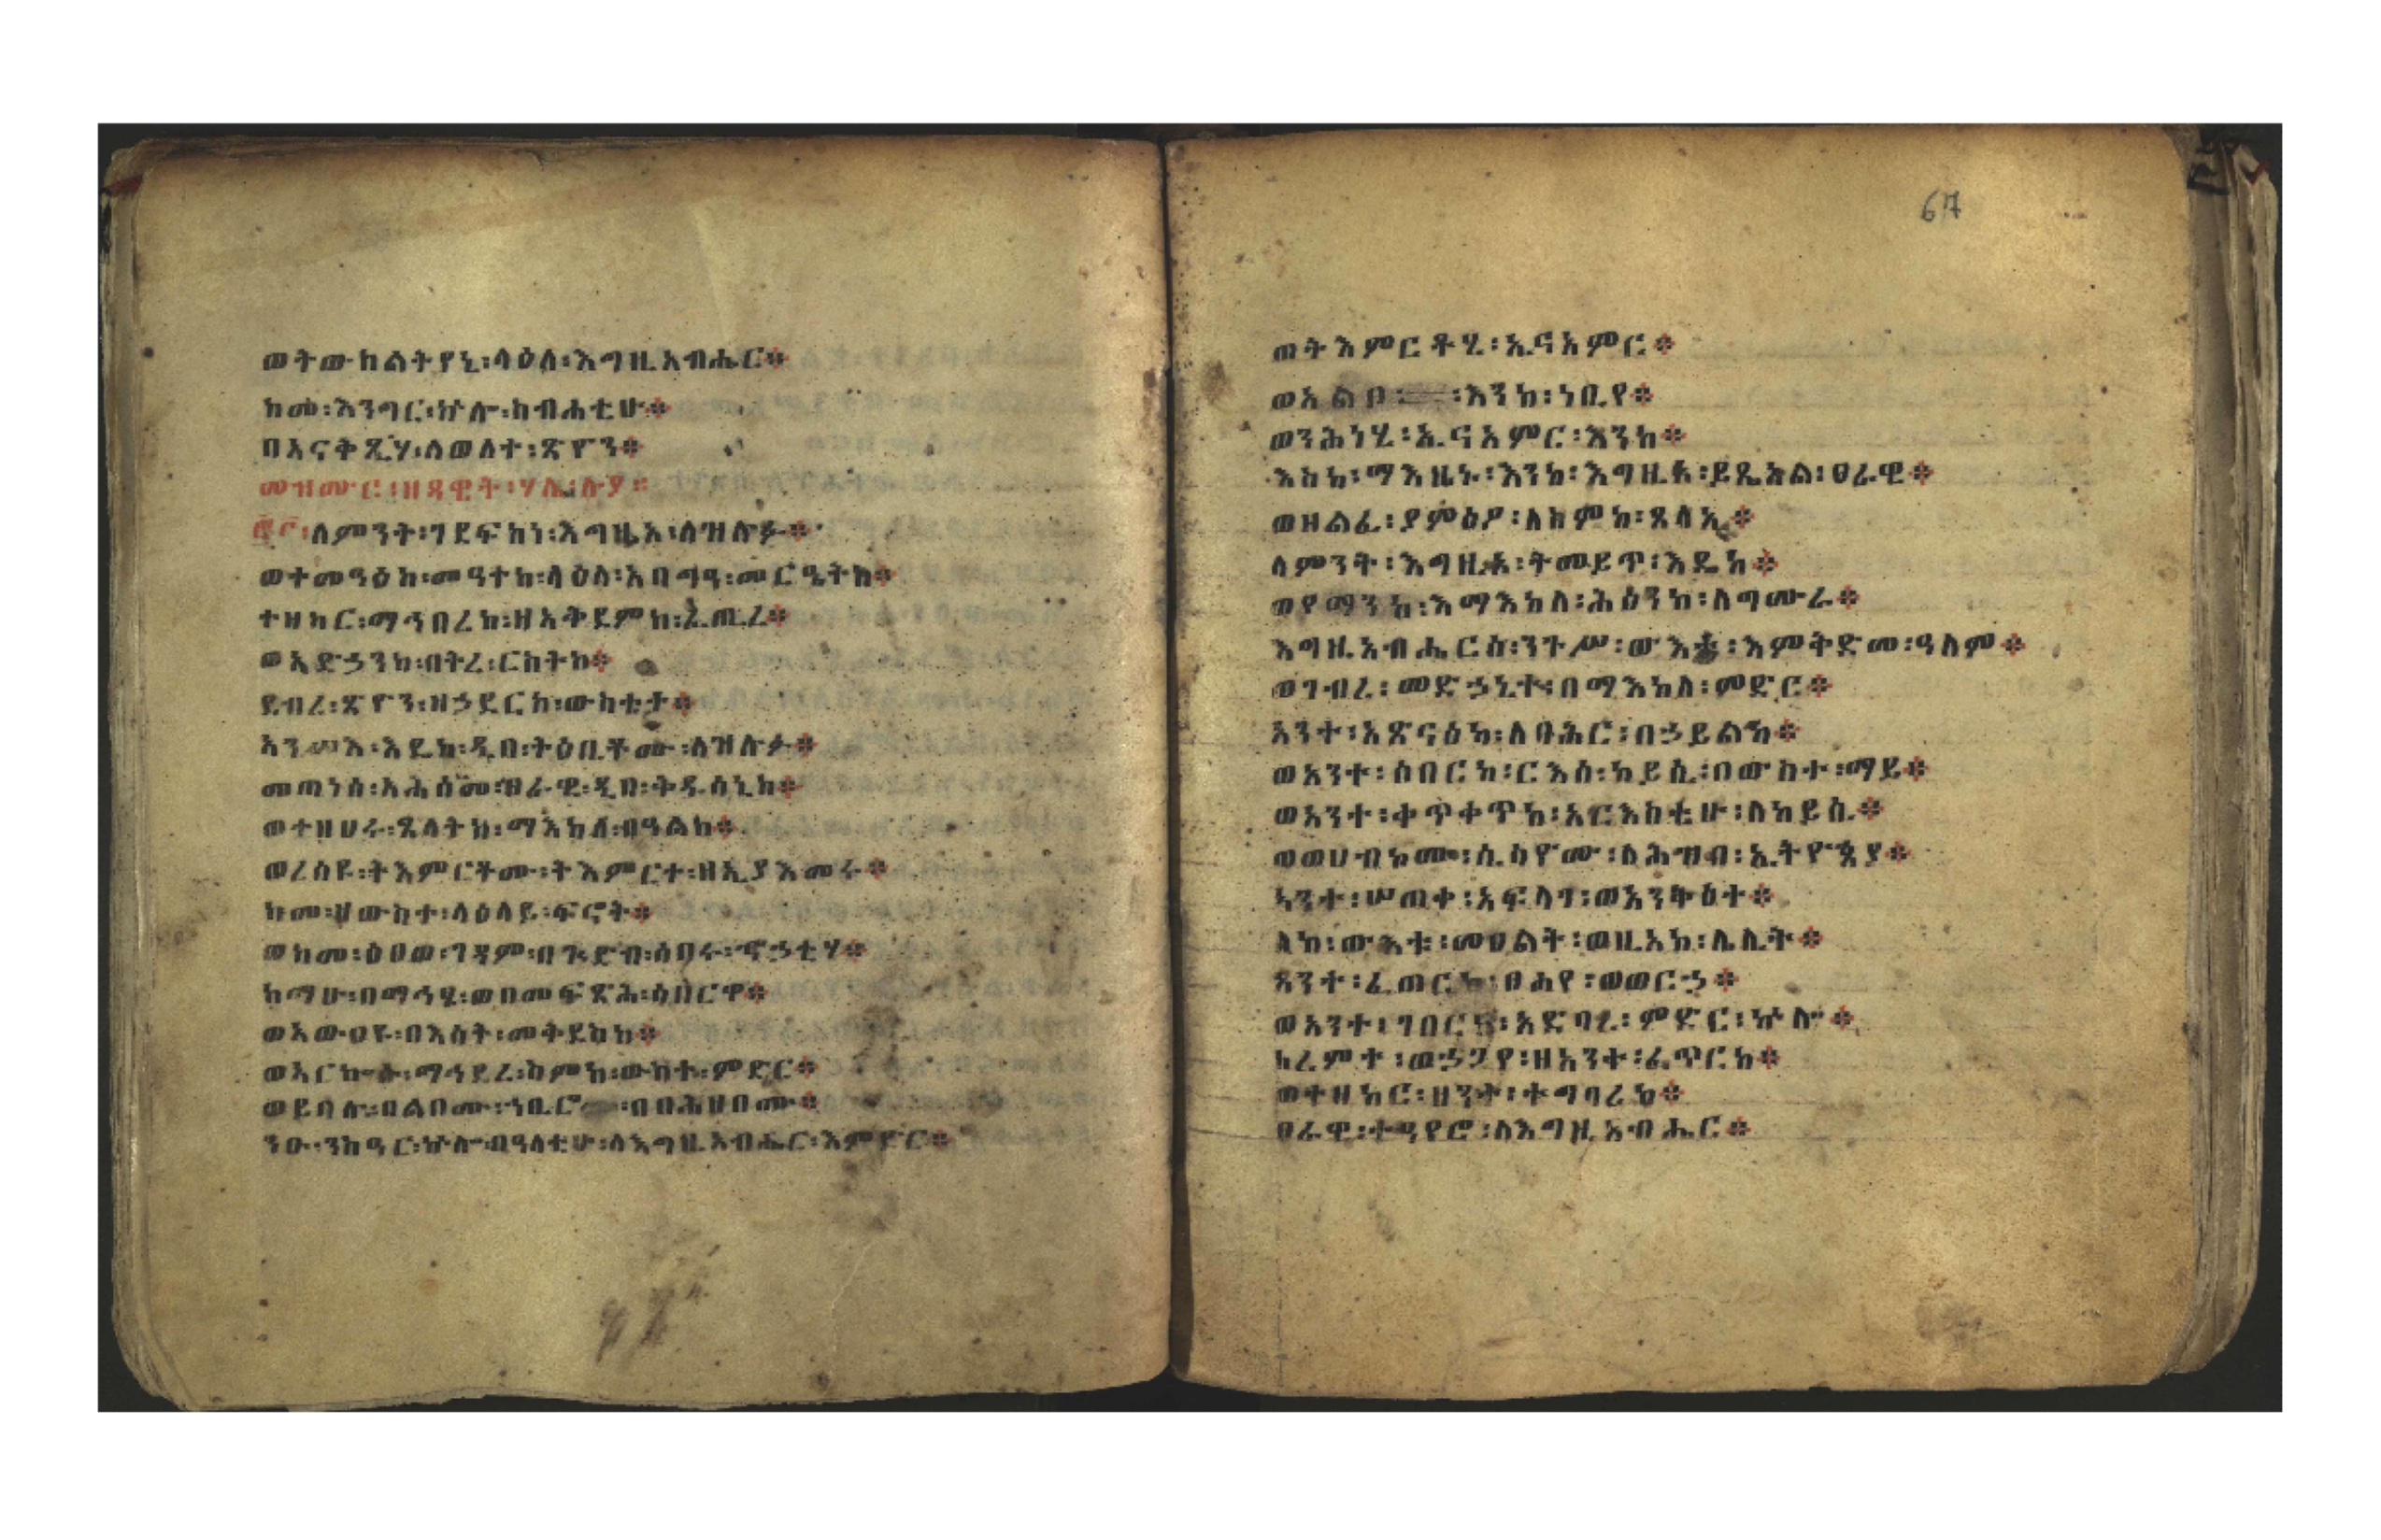 ወትውክልትየኒ፡ላዕለ፡እግዚአብሔር፨
ከመ፡እንግር፡ኵሎ፡ስብሐቲሁ፨
በአናቅጺሃ፡ለወለተ፡ጽዮን፨
መዝሙር፡ዘዳዊት፡ሃሌ፡ሉያ፨
ለምንት፡ገደፍከነ፡እግዚኦ፡ለዝሉፉ፨
ወተመዓዕከ፡መዓተከ፡ላዕለ፡አባግዓ፡መርዔትከ፨
ተዘከር፡ማኅበረከ፡ዘአቅደምከ፡ፈጢረ፨
ወአድኃንከ፡በትረ፡ርስትከ፨
ደብረ፡ጽዮን፡ዘኃደርከ፡ውስቴታ፨
አንሥእ፡እዴከ፡ዲበ፡ትዕቢቶሙ፡ለዝሉፉ፨
መጠነሰ፡አሕሠመ፡ፀራዊ፡ዲበ፡ቅዱሳኒከ፨
ወተዘሀሩ፡ጸላትከ፡ማእከለ፡በዓልከ፨
ወረሰዩ፡ትእምርቶሙ፡ትእምርተ፡ዘኢያእመሩ፨
ከመ፡ዘውስተ፡ላዕላይ፡ፍኖት፨
ወከመ፡ዕፀወ፡ገዳም፡በጕድብ፡ሰበሩ፡ኆኃቲሃ፨
ከማሁ፡በማኅፄ፡ወበመፍጽሕ፡ሰበርዋ፨
ወአውዐዩ፡በእሳት፡መቅደሰከ፨
ወአርኰሱ፡ማኅደረ፡ስምከ፡ውስተ፡ምድር፨
ወይቤሉ፡በልቦሙ፡ኅቢሮሙ፡በበሕዘቢሆሙ፨
ንዑ፡ንስዓር፡ኵሎ፡በዓላቲሁ፡ለእግዚአብሔር፡እምድር፨
67
ወትእምርቶሂ፡ኢናአምር፨
ወአልቦ፡እንከ፡ነቢየ፨
ወንሕነሂ፡ኢናአምር፡እንከ፨
እስከ፡ማእዜኑ፡እንከ፡እግዚኦ፡ይጼእል፡ፀራዊ፨
ወዘልፈ፡ያምዕዖ፡ለስምከ፡ጸላኢ፨
ለምንት፡እግዚኦ፡ትመይጥ፡እዴከ፨
ወየማንከ፡እማእከለ፡ሕፅንከ፡ለግሙራ፨
እግዚአብሔርሰ፡ንጉሥ፡ውእቱ፡እምቅድመ፡ዓለም፨
ወገብረ፡መድኃኒተ፡በማእከለ፡ምድር፨
አንተ፡አጽናዕካ፡ለባሕር፡በኃይልከ፨
ወአንተ፡ሰበርከ፡ርእሰ፡ከይሲ፡በውስተ፡ማይ፨
ወአንተ፡ቀጥቀጥከ፡አርእስቲሁ፡ለከይሲ፨
ወወሀብኮሙ፡ሲሳዮሙ፡ለሕዝብ፡ኢትዮጵያ፨
አንተ፡ሠጠቀ፡አፍላገ፡ወአንቅዕተ፨
ለከ፡ውእቱ፡መዐልት፡ወዚአከ፡ሌሊት፨
አንተ፡ፈጠርከ፡ፀሐየ፡ወወርኃ፨
ወአንተ፡ገበርከ፡አድባረ፡ምድር፡ኵሎ፨
ክረምተ፡ወኃጋየ፡ዘአንተ፡ፈጥርከ፨
ወተዘከር፡ዘንተ፡ተግባረከ፨
ፀራዊ፡ተዓየሮ፡ለእግዚአብሔር፨